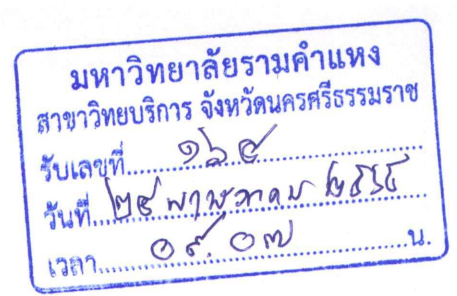 มหาวิทยาลัยรามคำแหง
สาขาวิทยบริการ จังหวัดนครศรีธรรมราช
รับเลขที่
วันที่ พฤษภาคม
เวลา ๐๙.๐๗ น.